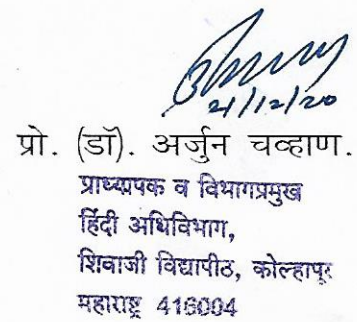 21/12/20
प्रो. (डॉ). अर्जुन चव्हाण.
प्राध्यापक व विभागप्रमुख
हिंदी अधिविभाग,
शिवाजी विद्यापीठ, कोल्हापूर
महाराष्ट्र 416004